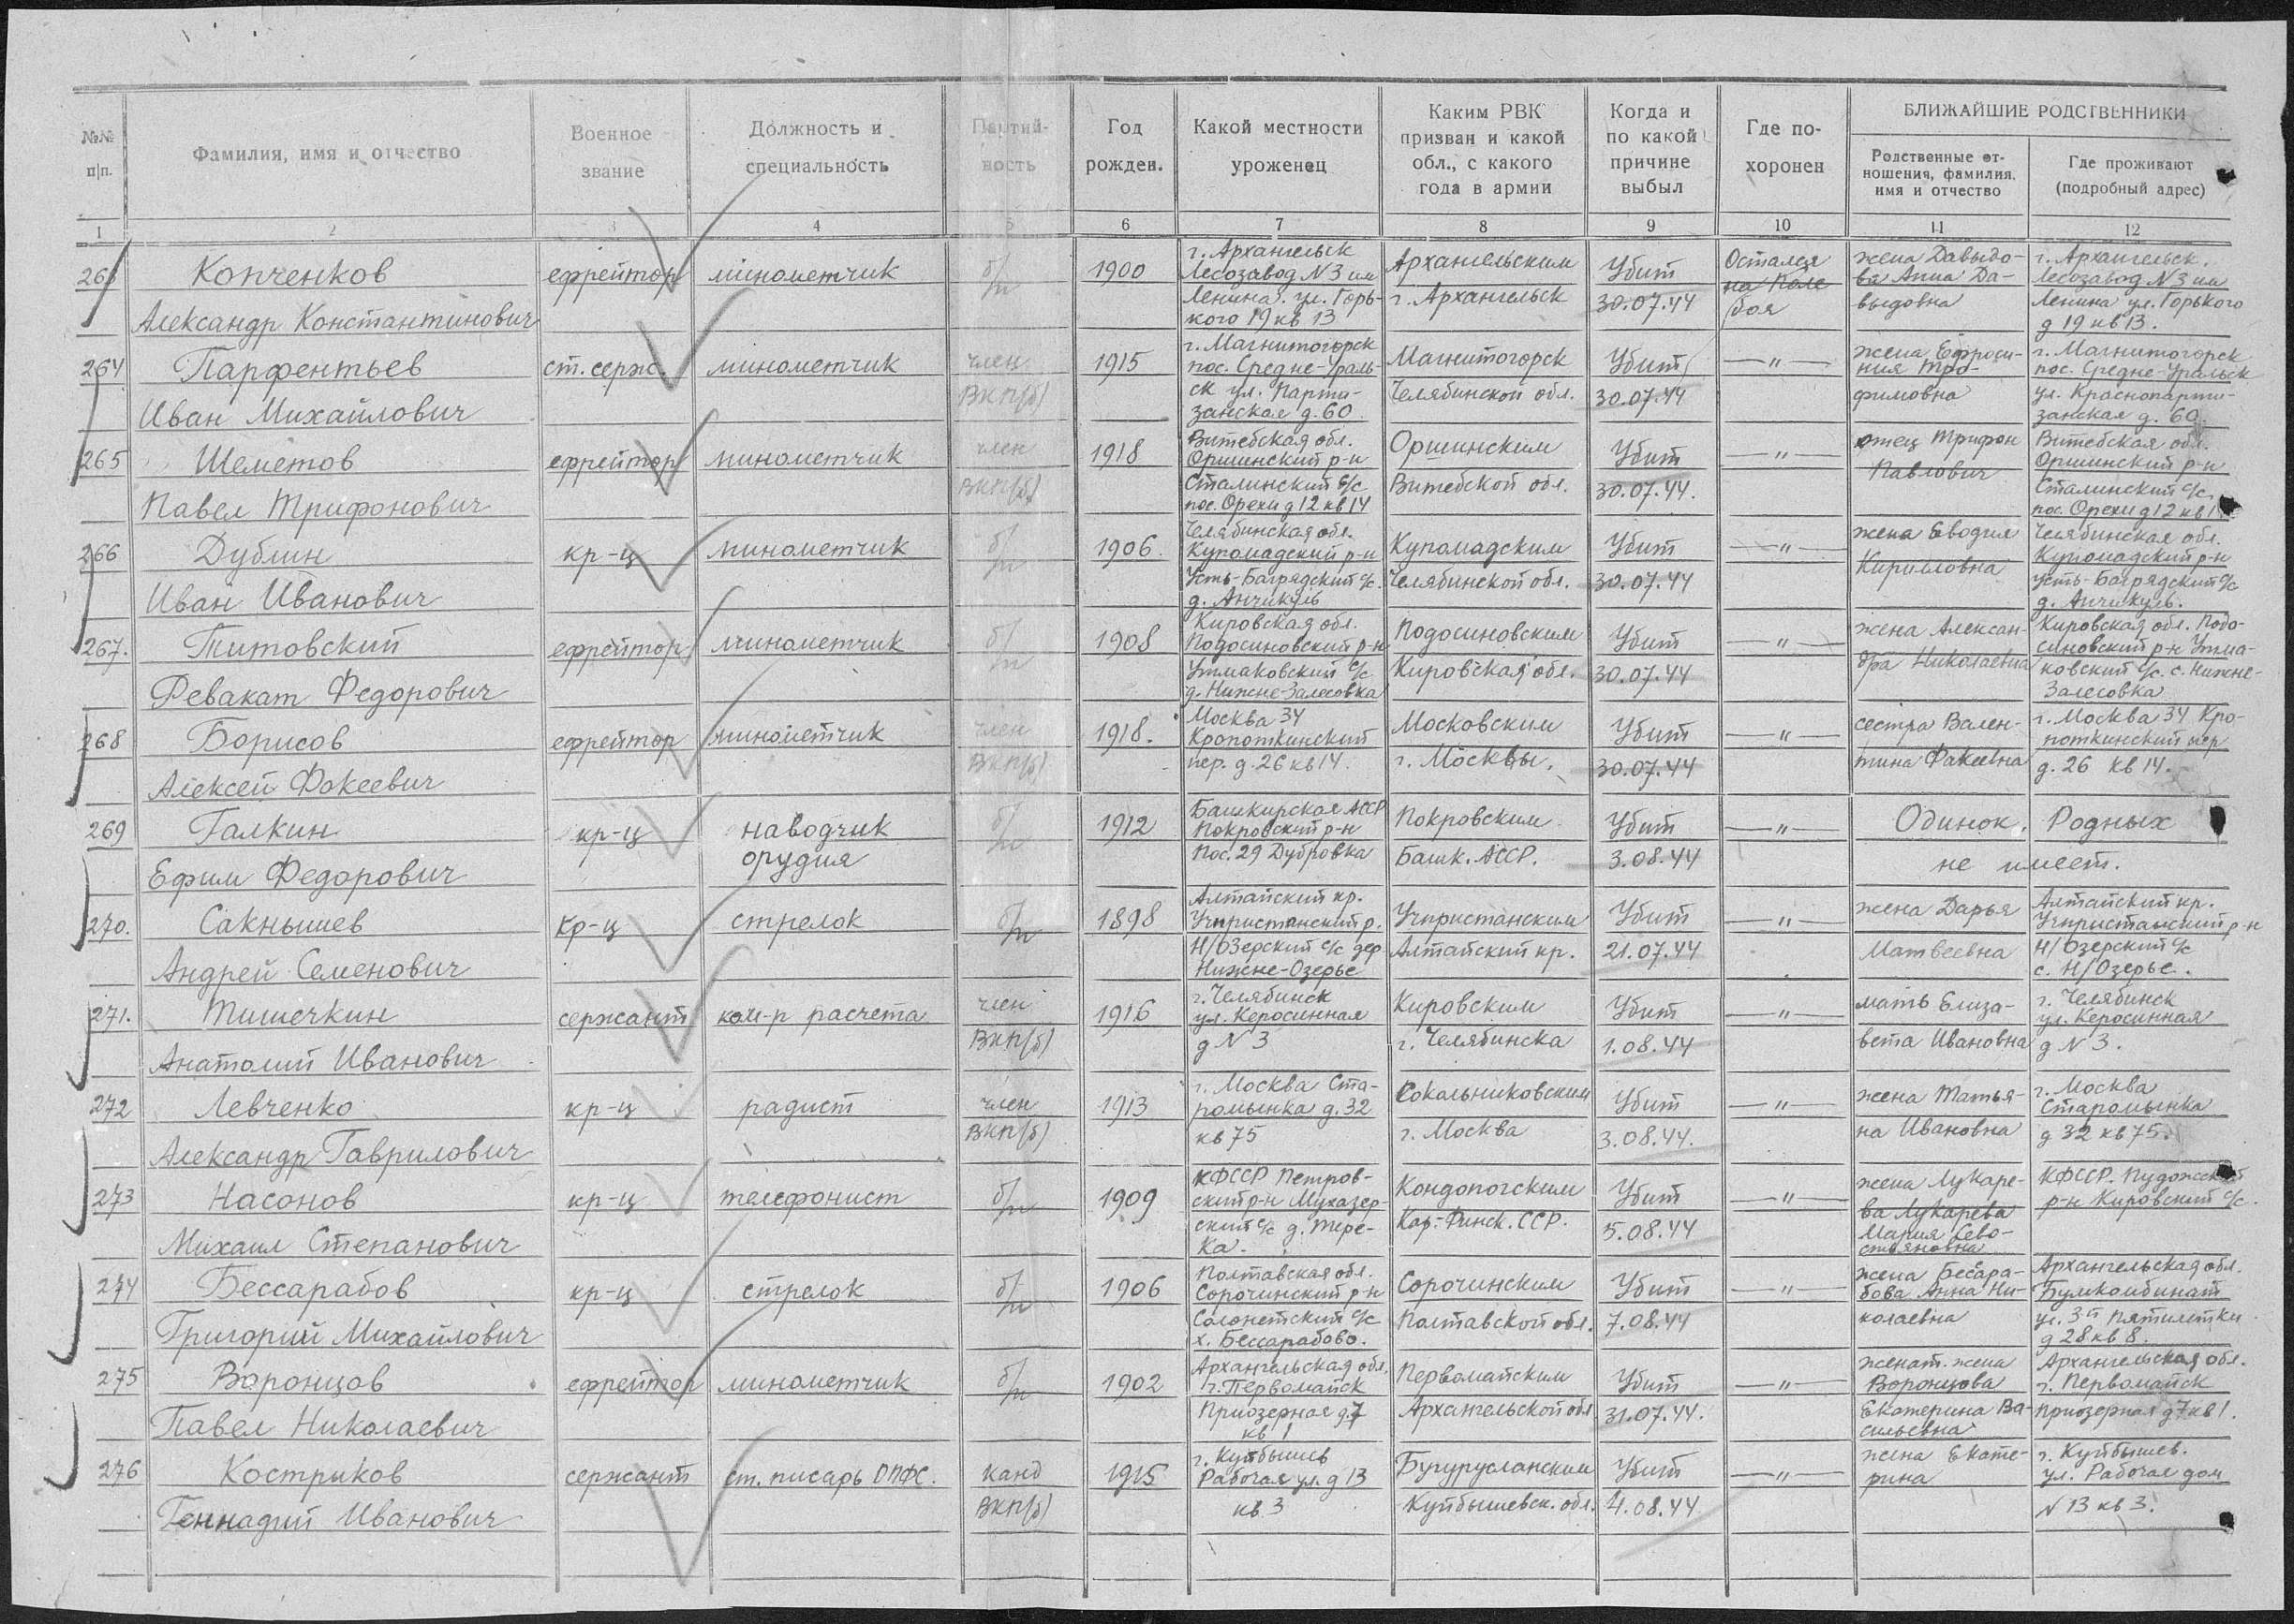 №№ п/п.
Фамилия, имя и отчество
Военное звание
Должность и специальность
Партий-ность
Год рожден.
Какой местности уроженец
Каким РВК призван и какой обл., с какого года в армии
Когда и по какой причине выбыл
Где по-хоронен
БЛИЖАЙШИЕ РОДСТВЕННИКИ
Родственные от-ношения, фамилия, имя и отчество
Где проживают (подробный адрес)
1 2 3 4 5 6 7 8 9 10 11 12
263 Копченков Александр Константинович
ефрейтор
минометчик
б/п
1900
г. Архангельск Лесозавод N3 им Ленина. ул. Горь-кого 19 кв 13
Архангельским г. Архангельск
Убит 30.07.44
Остался на поле боя
жена Давыдо-ва Анна Да-выдовна
г. Архангельск. Лесозавод N3 им Ленина ул. Горького д 19 кв 13.
264 Парфентьев Иван Михайлович
ст. серж.
минометчик
член ВКП(б)
1915
г. Магнитогорск пос. Средне-Ураль-ск ул. Парти-занская д. 60
Магнитогорск Челябинской обл.
Убит 30.07.44
—"—
жена Ефроси-ния Тро-фимовна
г. Магнитогорск пос. Средне-Уральск ул. Краснопарти-занская д. 60
265 Шеметов Павел Трифонович
ефрейтор
минометчик
член ВКП(б)
1918
Витебская обл. Оршинский р-н Сталинский с/с пос. Орехи д 12 кв 14
Оршинским Витебской обл.
Убит 30.07.44.
—"—
отец Трифон Павлович
Витебская обл. Оршинский р-н Сталинский с/с, пос. Орехи д 12 кв
266 Дублин Иван Иванович
кр-ц
минометчик
б/п
1906.
Челябинская обл. Купомадский р-н Усть-Багрядский с/с. д. Анчикуль
Купомадским Челябинской обл.
Убит 30.07.44
—"—
жена Еводия Кирилловна
Челябинская обл. Купомадский р-н Усть-Багрядский с/с д. Анчикуль.
267. Титовский Февакат Федорович
ефрейтор
минометчик
б/п
1908
Кировская обл. Подосиновский р-н Утмаковский с/с д. Нижне-Залесовка
Подосиновским Кировская обл.
Убит 30.07.44
—"—
жена Алексан-дра Николаевна
Кировская обл. Подо-синовский р-н Утма-ковский с/с. с. Нижне-Залесовка
268 Борисов Алексей Фокеевич
ефрейтор
минометчик
член ВКП(б)
1918.
Москва 34 Кропоткинский пер. д. 26 кв 14.
Московским г. Москвы.
Убит 30.07.44
—"—
сестра Вален-тина Факеевна
г. Москва 34 Кро-поткинский пер д. 26 кв 14.
269 Галкин Ефим Федорович
кр-ц
наводчик орудия
б/п
1912
Башкирская АССР Покровский р-н Пос. 29 Дубровка
Покровским Башк. АССР.
Убит 3.08.44
—"—
Одинок. Родных не имеет.
270. Сакнышев Андрей Семенович
кр-ц
стрелок
б/п
1898
Алтайский кр. Учпристанский р. Н/Озерский с/с дер Нижне-Озерье
Учпристанским Алтайский кр.
Убит 21.07.44
—"—
жена Дарья Матвеевна
Алтайский кр. Учпристанский р-н Н/Озерский с/с с. Н/Озерье.
271. Тишечкин Анатолий Иванович
сержант
ком-р расчета
член ВКП(б)
1916
г. Челябинск ул. Керосинная д N 3
Кировским г. Челябинска
Убит 1.08.44
—"—
мать Елиза-вета Ивановна
г. Челябинск ул. Керосинная д N 3.
272 Левченко Александр Гаврилович
кр-ц
радист
член ВКП(б)
1913
г. Москва Ста-ромынка д. 32 кв 75
Сокольниковским г. Москва
Убит 3.08.44.
—"—
жена Татья-на Ивановна
г. Москва Старомынка д 32 кв 75.
273 Насонов Михаил Степанович
кр-ц
телефонист
б/п
1909
КФССР Петров-ский р-н Мухазер-ский с/с д. Тере-ка.
Кондопогским Кар-Финск. ССР.
Убит 5.08.44
—"—
жена Лукаре-ва Лукарева Мария Сево-стьяновна
КФССР. Пудожский р-н Кировский с/с.
274 Бессарабов Григорий Михайлович
кр-ц
стрелок
б/п
1906
Полтавская обл. Сорочинский р-н Солонетский с/с х. Бессарабово.
Сорочинским Полтавской обл.
Убит 7.08.44
—"—
жена Бесара-бова Анна Ни-колаевна
Архангельская обл. Бумкомбинат ул. 3-й Пятилетки д 28 кв 8.
275 Воронцов Павел Николаевич
ефрейтор
минометчик
б/п
1902
Архангельская обл. г. Первомайск Приозерная д. 7 кв 1
Первомайским Архангельской обл
Убит 31.07.44.
—"—
женат. жена Воронцова Екатерина Ва-сильевна
Архангельская обл. г. Первомайск Приозерная д 7 кв 1.
276 Костриков Геннадий Иванович
сержант
ст. писарь ОПФС.
канд ВКП(б)
1915
г. Куйбышев Рабочая ул. д 13 кв 3
Бугурусланским Куйбышевск. обл.
Убит 4.08.44.
—"—
жена Екате-рина
г. Куйбышев. ул. Рабочая дом N 13 кв 3.